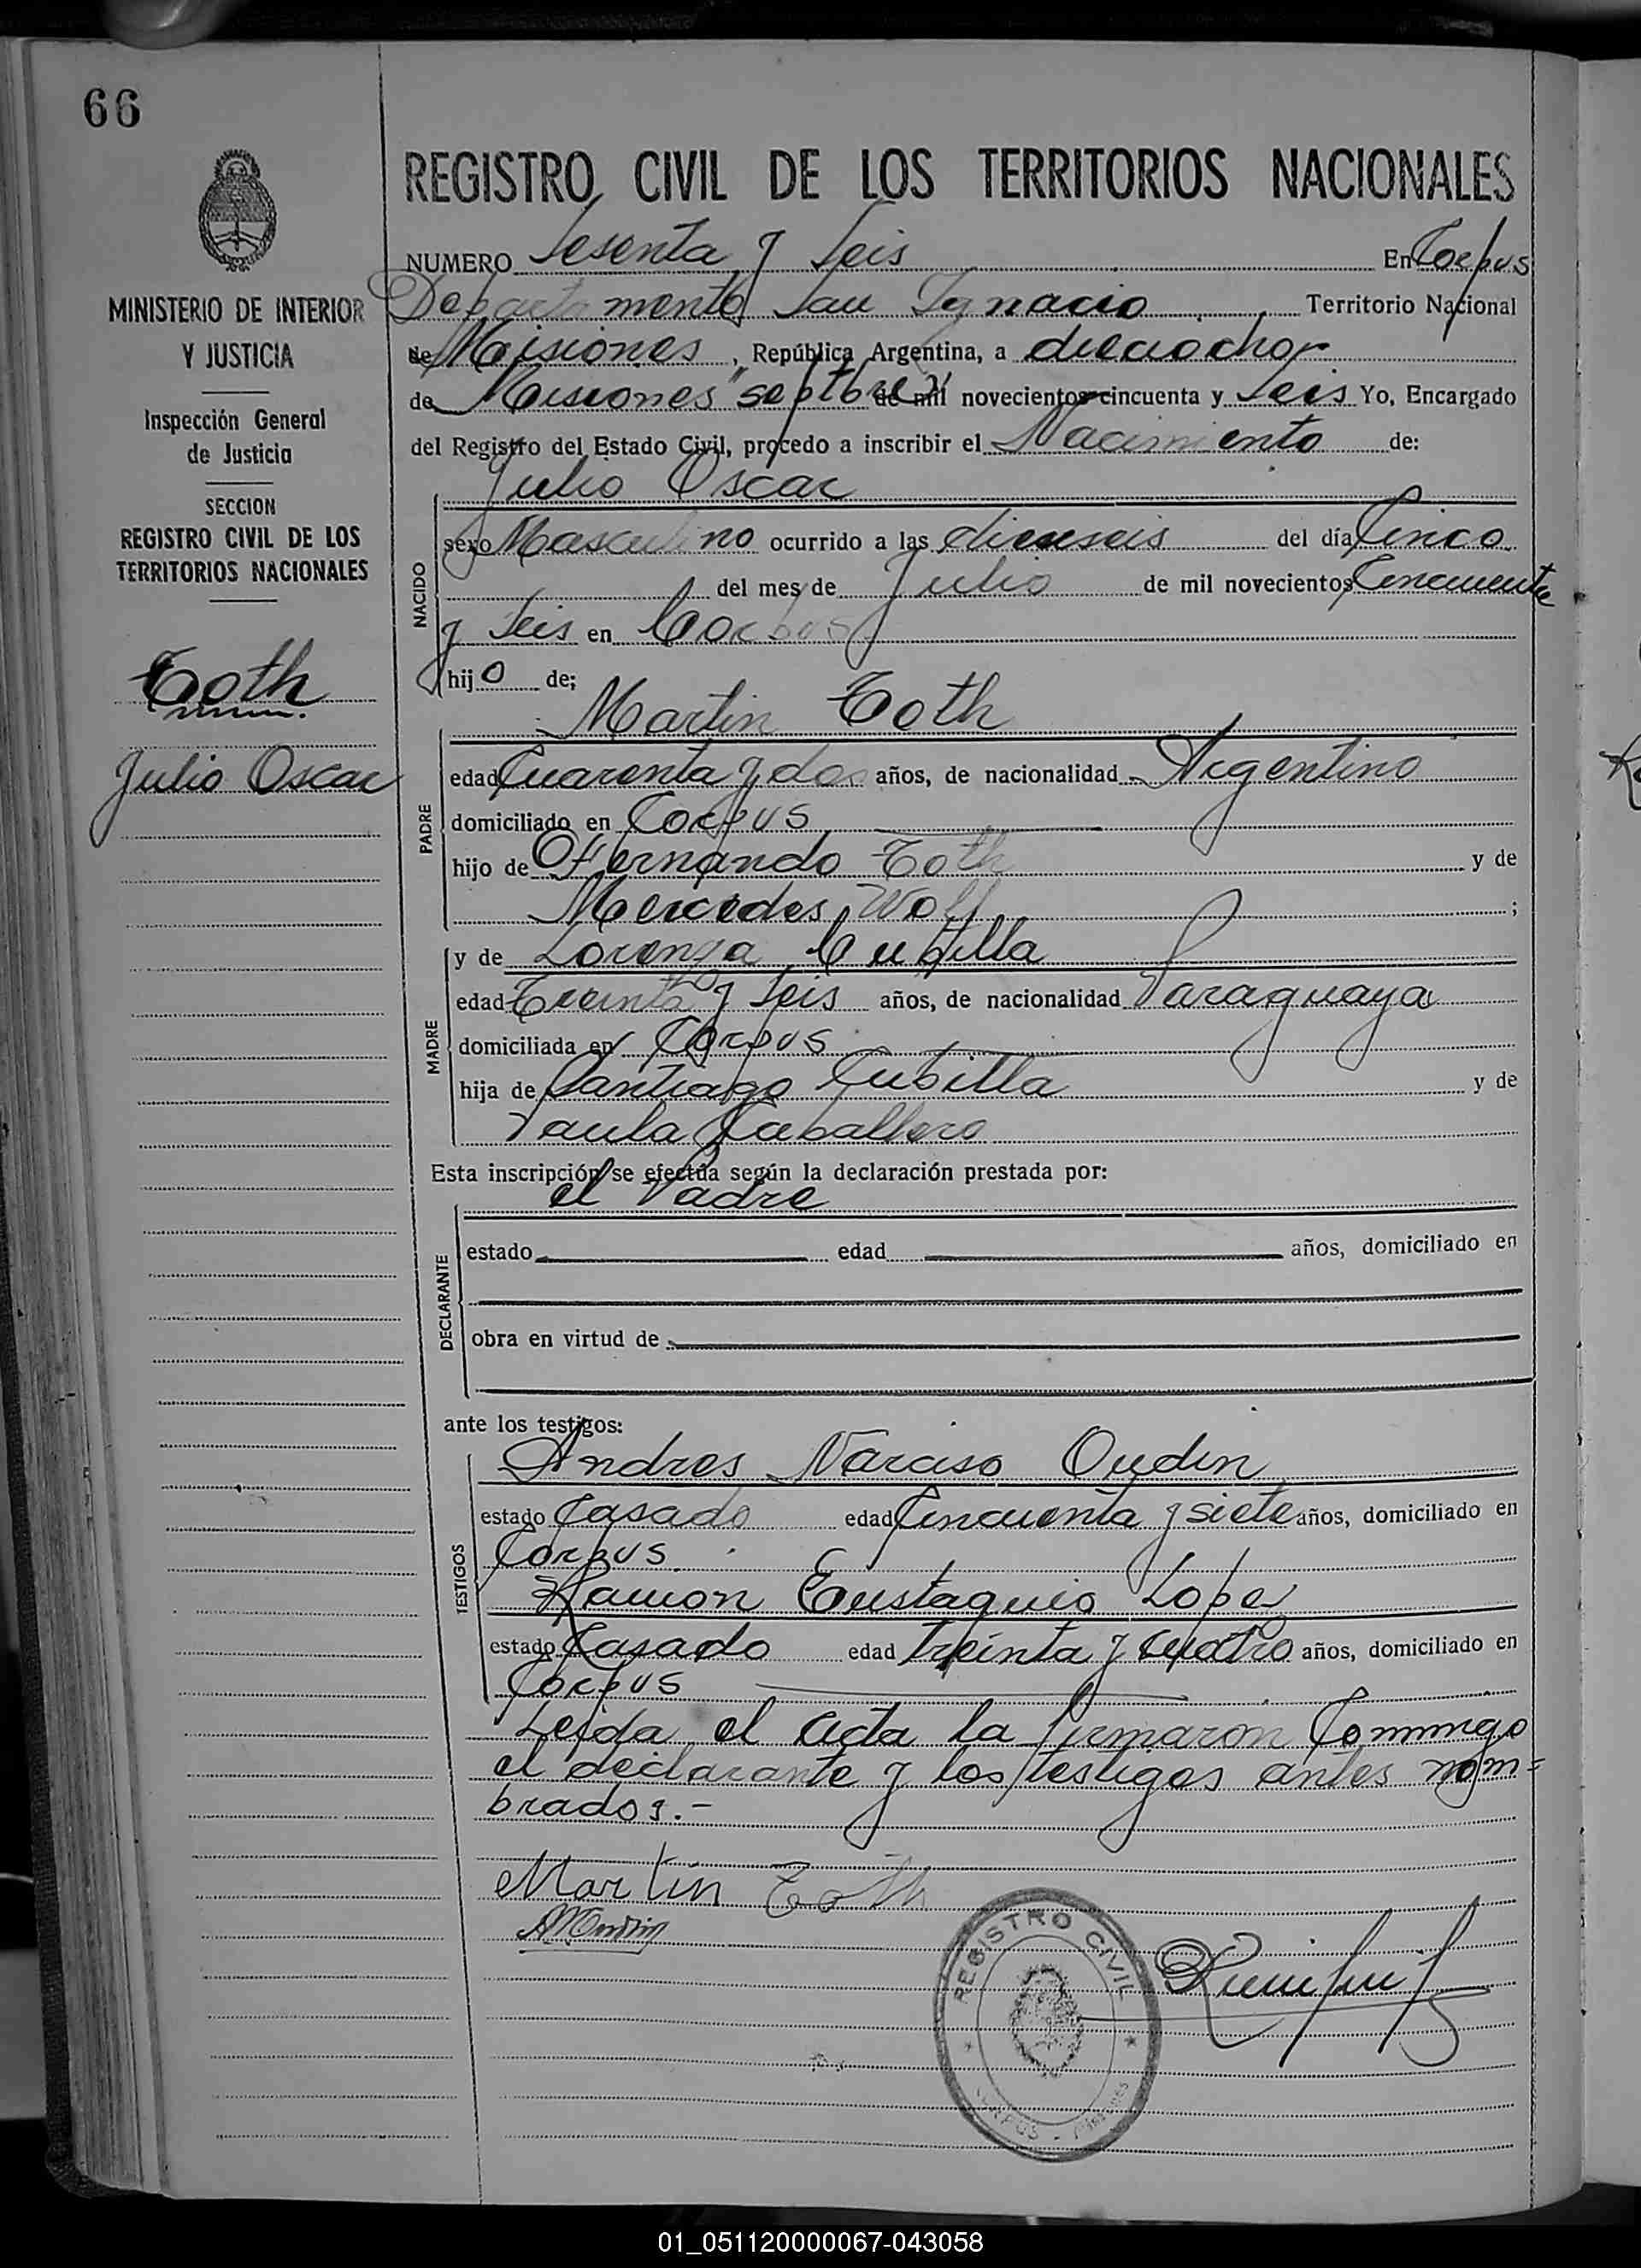 66
REGISTRO CIVIL DE LOS TERRITORIOS NACIONALES
NUMERO Sesenta y Seis En Corpus
Departamento San Ignacio Territorio Nacional
de Misiones, República Argentina, a dieciocho
de Misiones "septbre" de mil novecientos cincuenta y Seis Yo, Encargado
del Registro del Estado Civil, procedo a inscribir el Nacimiento de:
MINISTERIO DE INTERIOR
Y JUSTICIA
Inspección General
de Justicia
SECCION
REGISTRO CIVIL DE LOS
TERRITORIOS NACIONALES
Toth
Julio Oscar
NACIDO
Julio Oscar
sexo Masculino ocurrido a las dieciseis del día Cinco
del mes de Julio de mil novecientos Cincuenta
y Seis en Corpus
hijo de;
PADRE
Martin Toth
edad Cuarenta y dos años, de nacionalidad Argentino
domiciliado en Corpus
hijo de Fernando Toth y de
Mercedes Wolf;
MADRE
y de Lorenza Cubilla
edad Treinta y Seis años, de nacionalidad Paraguaya
domiciliada en Corpus
hija de Santiago Cubilla y de
Paula Caballero
Esta inscripción se efectúa según la declaración prestada por:
el Padre
DECLARANTE
estado edad años, domiciliado en
obra en virtud de
ante los testigos:
TESTIGOS
Andres Narciso Oudin
estado Casado edad Cincuenta y siete años, domiciliado en
Corpus
Ramon Eustaquio Lopez
estado Casado edad Treinta y cuatro años, domiciliado en
Corpus
Leida el acta la firmaron Conmigo
el declarante y los testigos antes nom=
brados.-
Martin Toth
REGISTRO CIVIL
CORPUS - Misiones
01_051120000067-043058